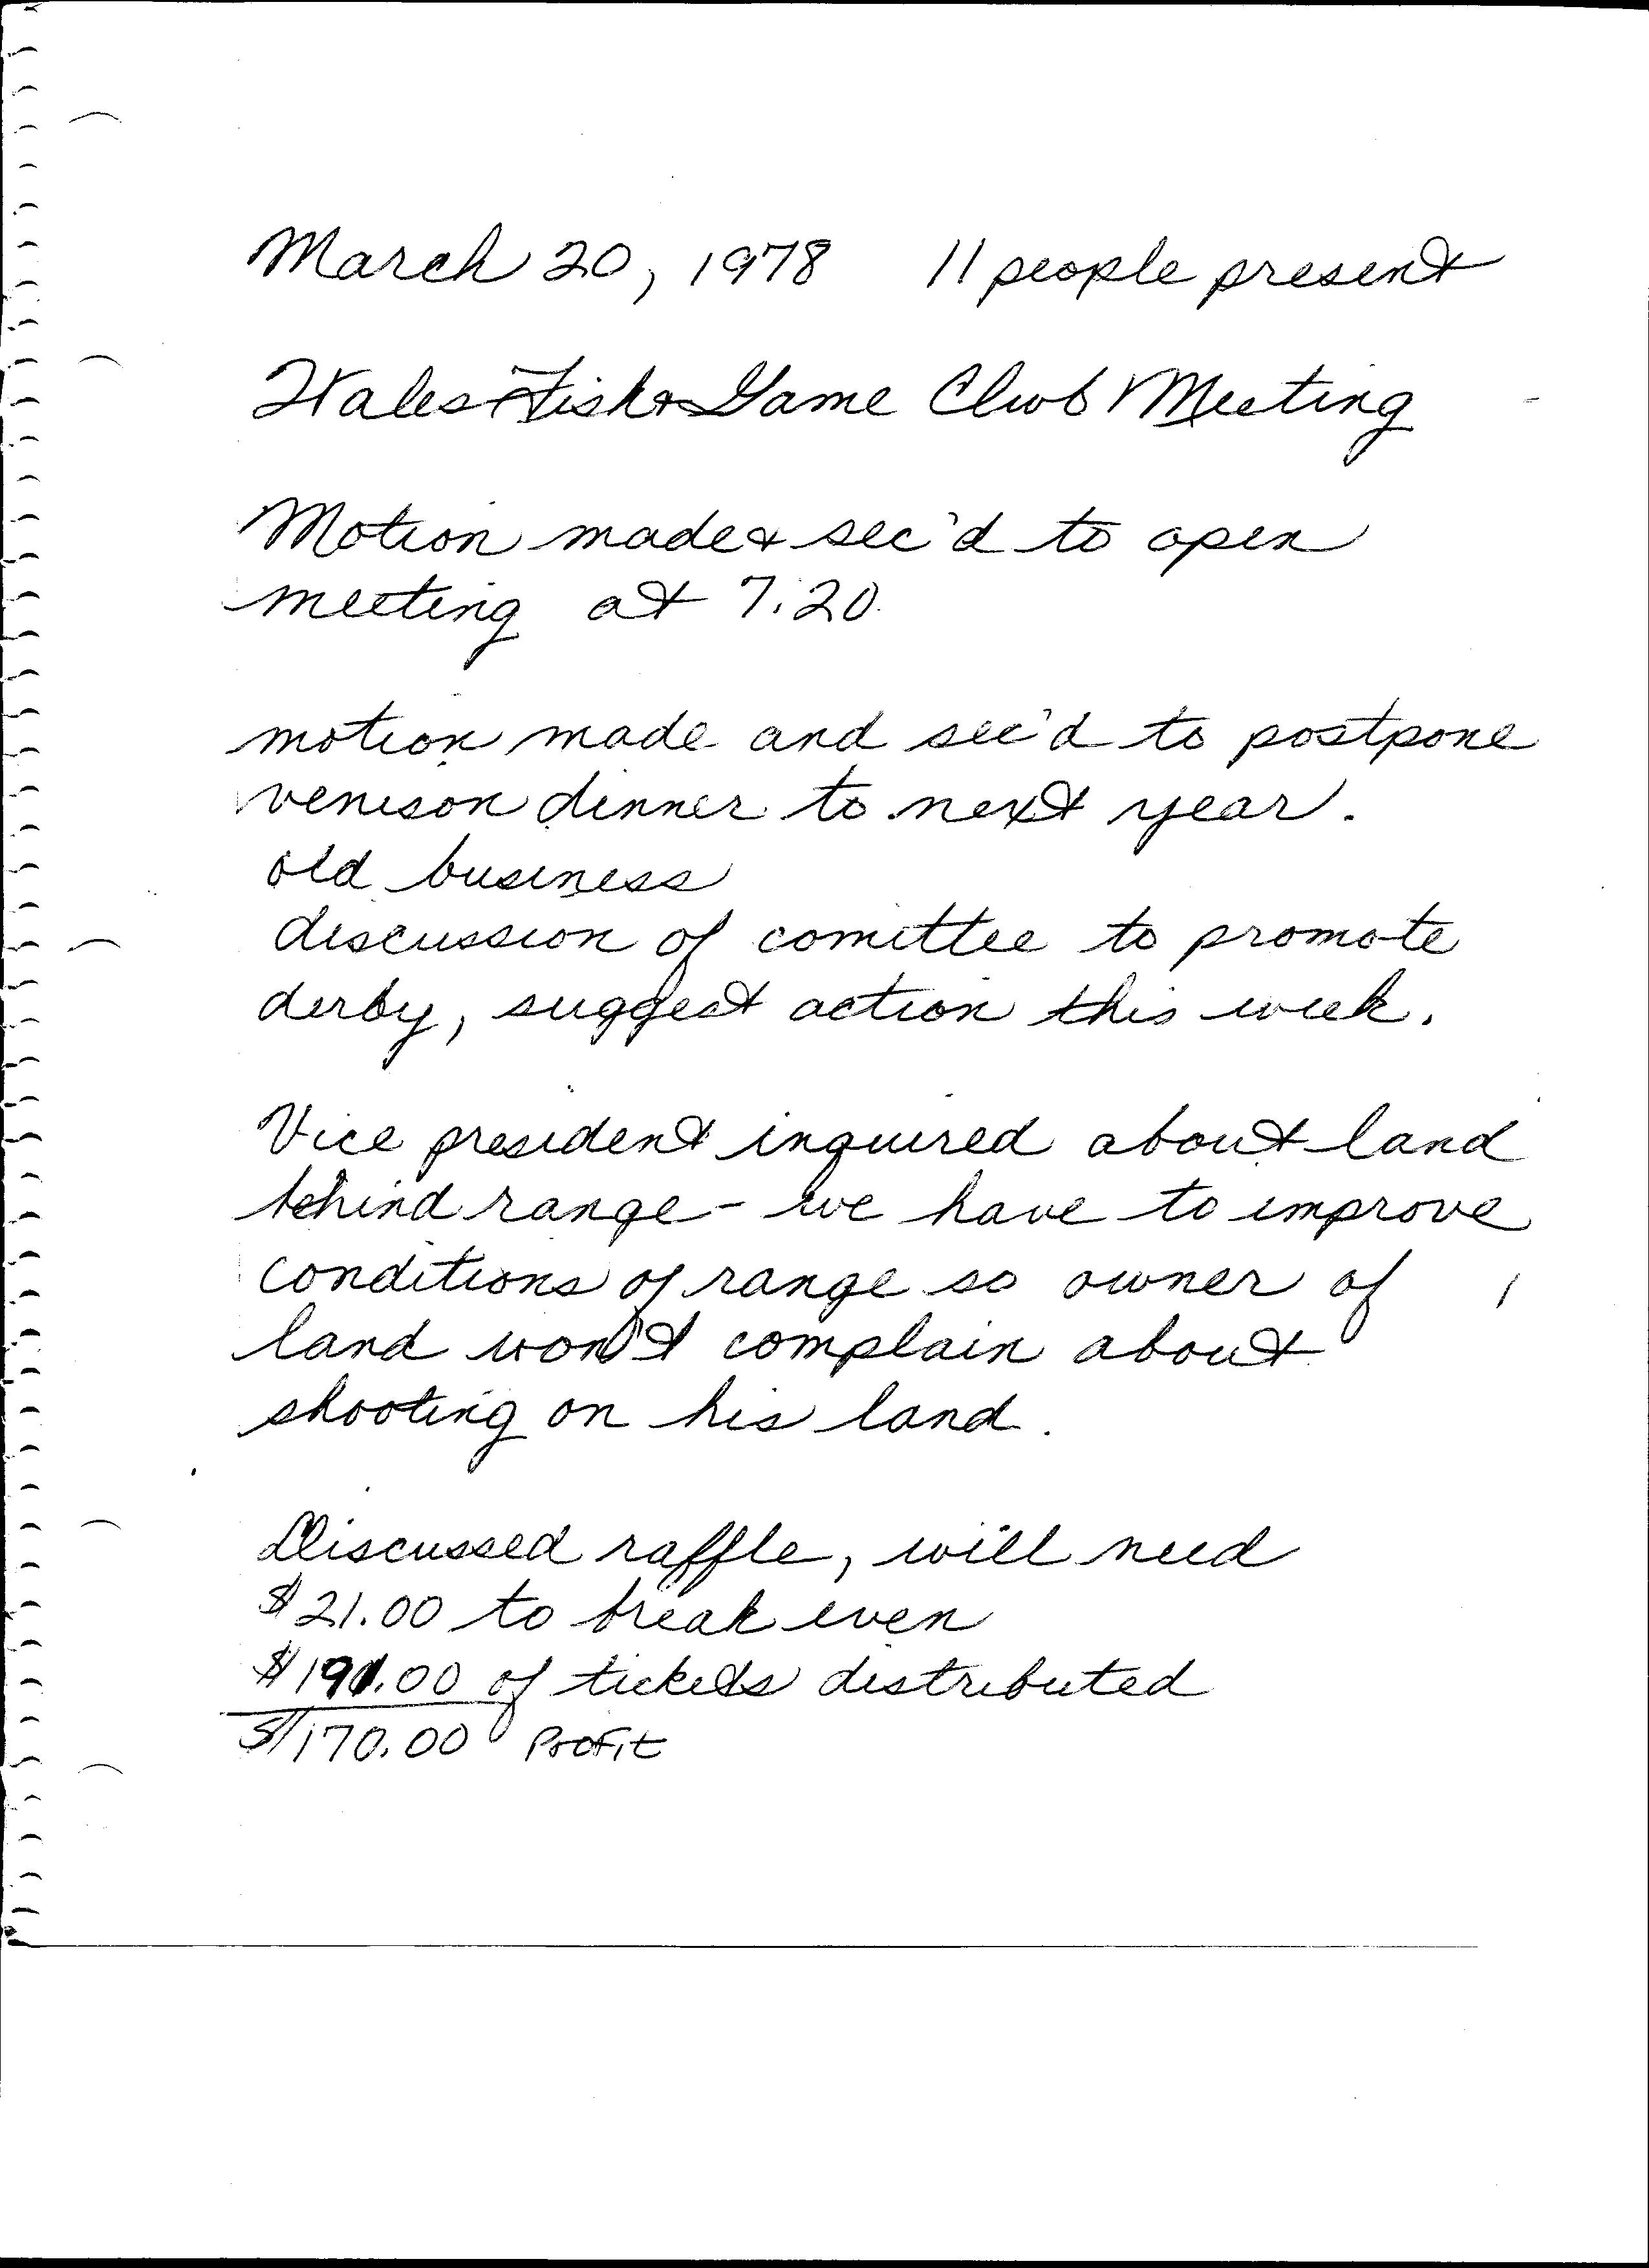 March 20, 1978 11 people present
Wales Fish & Game Club Meeting
Motion made & sec'd to open
meeting at 7:20
motion made and sec'd to postpone
venison dinner to next year.
old business
discussion of comittee to promote
derby, suggest action this week.
Vice president inquired about land
behind range - we have to improve
conditions of range so owner of
land won't complain about
shooting on his land.
Discussed raffle, will need
$21.00 to break even
$191.00 of tickets distributed
$170.00 Profit